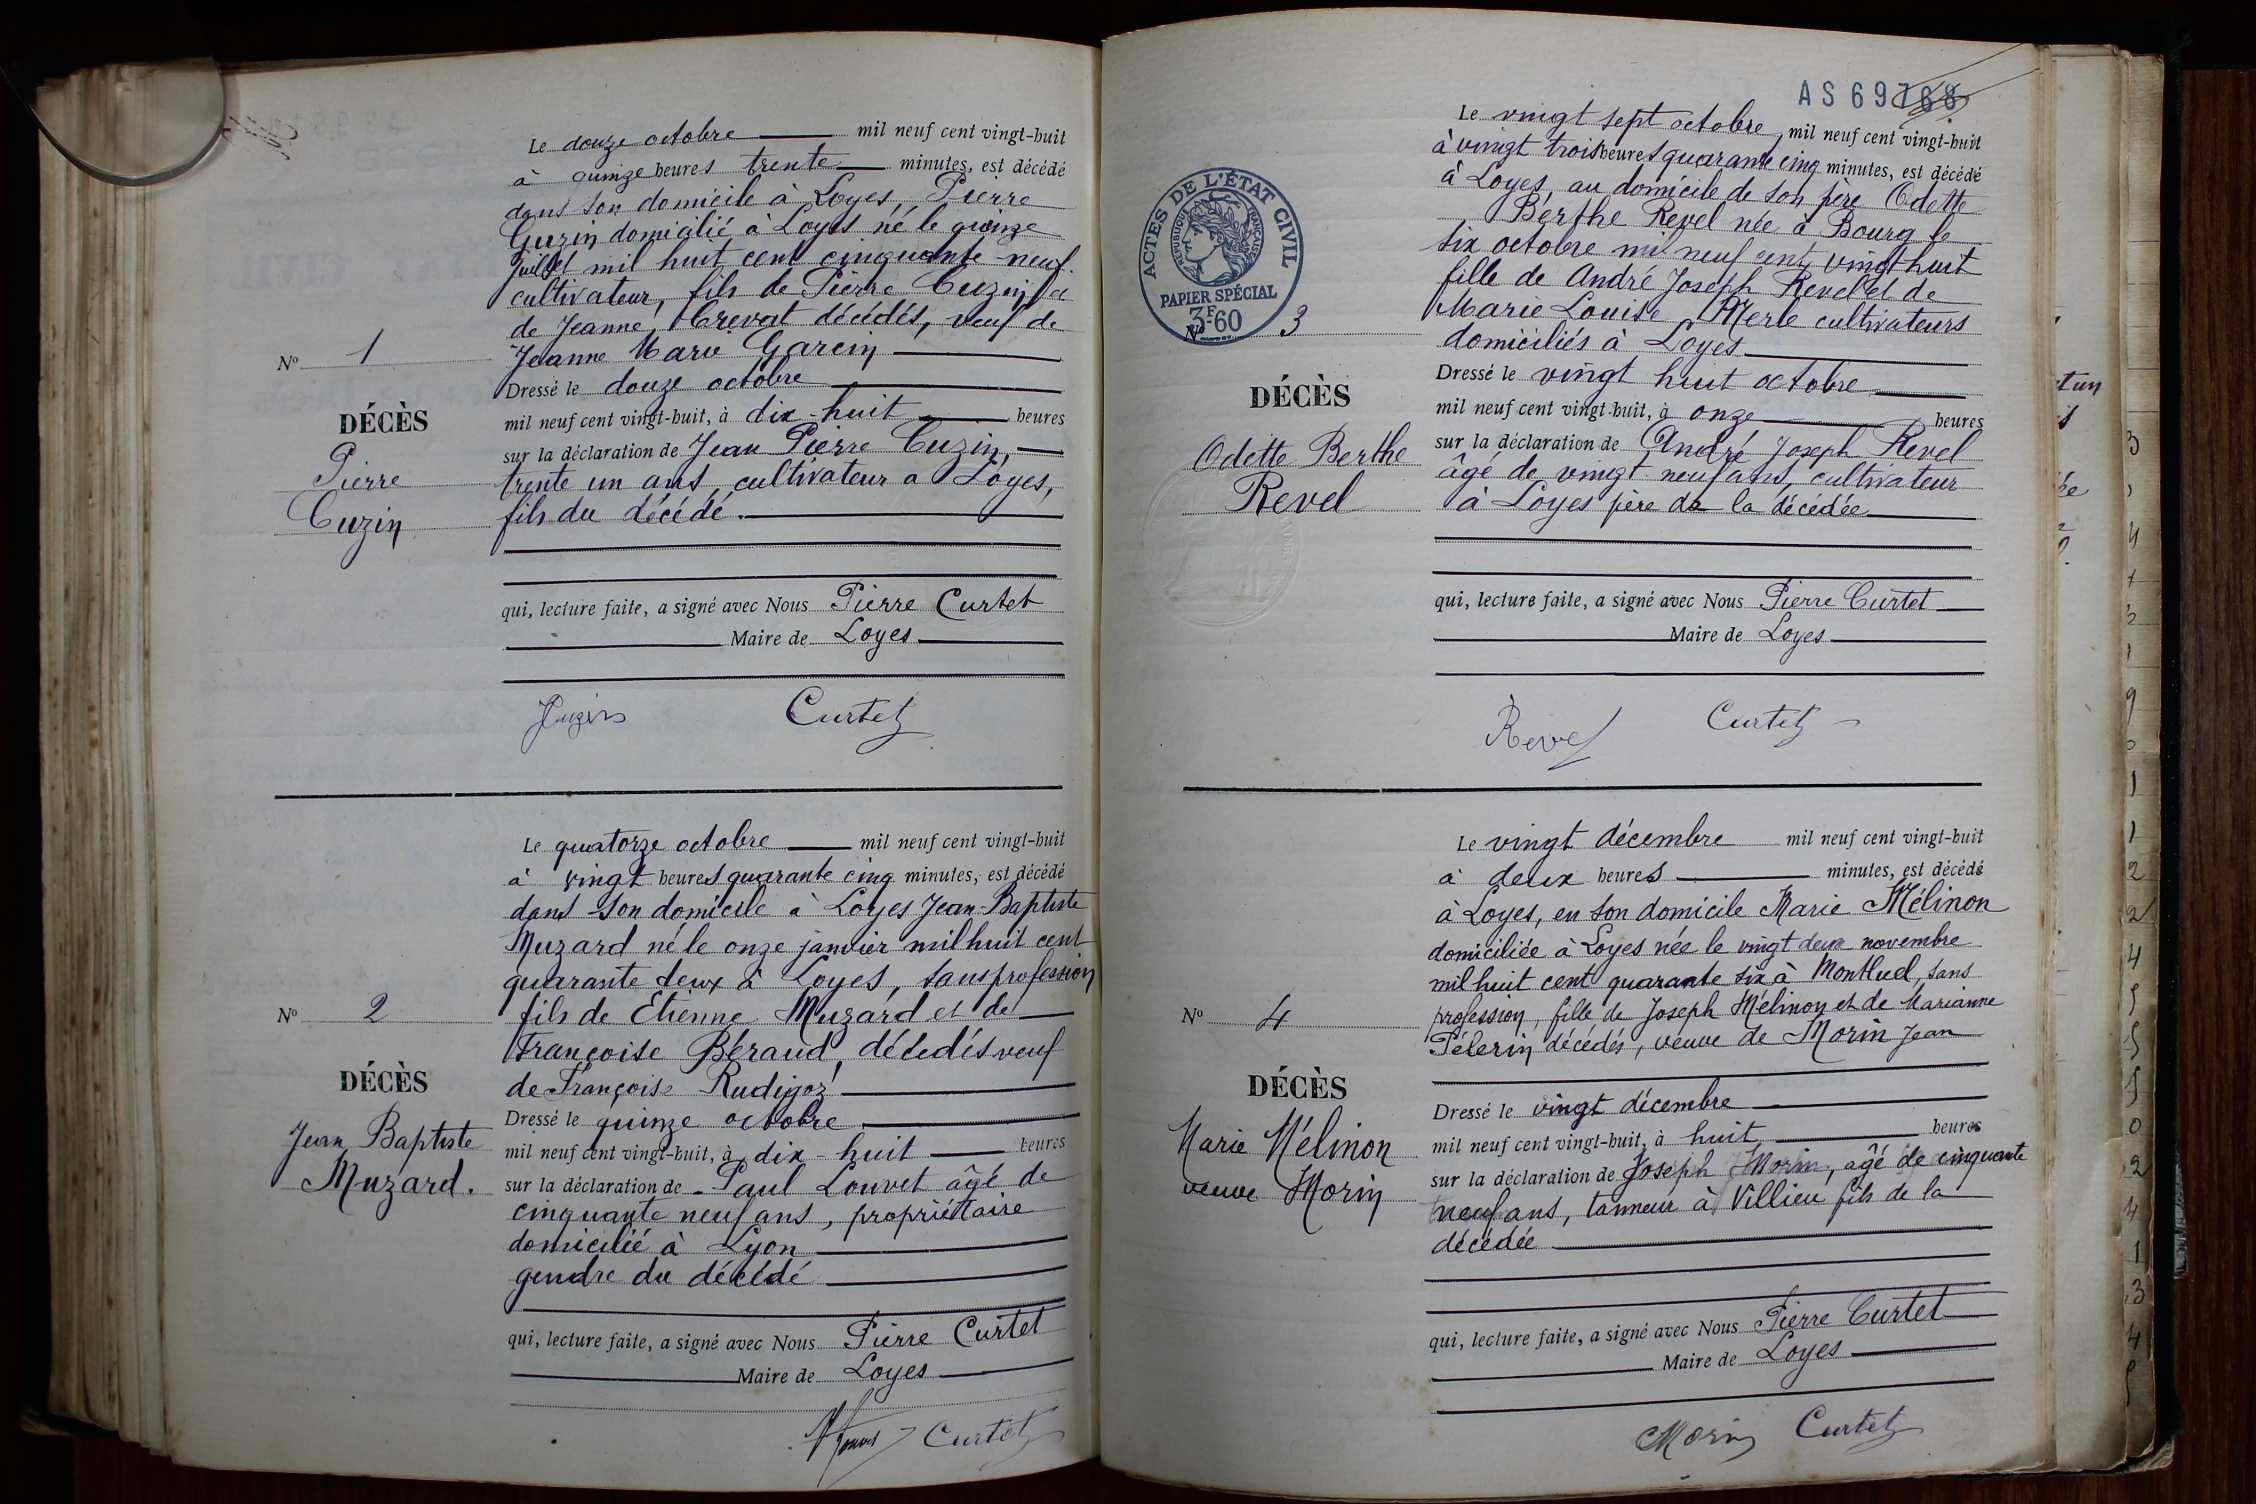 Le douze octobre mil neuf cent vingt-huit
à quinze heures trente minutes, est décédé
dans son domicile à Loyes, Pierre
Cuzin domicilié à Loyes né le quinze
juillet mil huit cent cinquante-neuf.
cultivateur, fils de Pierre Cuzin et
de Jeanne Crevat décédés, veuf de
Jeanne Marie Garcin
Nº 1
Dressé le douze octobre
DÉCÈS
mil neuf cent vingt-huit, à dix-huit heures
sur la déclaration de Jean Pierre Cuzin,
Pierre
trente un ans, cultivateur a Loyes,
Cuzin
fils du décédé.
qui, lecture faite, a signé avec Nous Pierre Curtet
Maire de Loyes
Cuzin Curtet
Le quatorze octobre mil neuf cent vingt-huit
à vingt heures quarante cinq minutes, est décédé
dans son domicile à Loyes Jean-Baptiste
Muzard né le onze janvier mil huit cent
quarante deux à Loyes, sans profession
Nº 2
fils de Etienne Muzard et de
Françoise Béraud, décédés veuf
DÉCÈS
de Françoise Rudigoz
Dressé le quinze octobre
Jean Baptiste
mil neuf cent vingt-huit, à dix-huit heures
Muzard.
sur la déclaration de Paul Louvet âgé de
cinquante neuf ans, propriétaire
domicilié à Lyon
gendre du décédé
qui, lecture faite, a signé avec Nous Pierre Curtet
Maire de Loyes
Louvet Curtet
AS 69768
ACTES DE L'ÉTAT CIVIL
RÉPUBLIQUE FRANÇAISE
PAPIER SPÉCIAL
3F60
Le vingt sept octobre mil neuf cent vingt-huit
à vingt trois heures quarante cinq minutes, est décédé
à Loyes, au domicile de son père Odette
Berthe Revel née à Bourg le
six octobre mil neuf cent vingt huit
fille de André Joseph Revel et de
Marie Louise Merle cultivateurs
Nº 3
domiciliés à Loyes
Dressé le vingt huit octobre
DÉCÈS
mil neuf cent vingt-huit, à onze heures
Odette Berthe
sur la déclaration de André Joseph Revel
âgé de vingt neuf ans, cultivateur
Revel
à Loyes père de la décédée
qui, lecture faite, a signé avec Nous Pierre Curtet
Maire de Loyes
Revel Curtet
Le vingt décembre mil neuf cent vingt-huit
à deux heures minutes, est décédé
à Loyes, en son domicile Marie Mélinon
domiciliée à Loyes née le vingt deux novembre
mil huit cent quarante six à Montluel, sans
Nº 4
profession, fille de Joseph Mélinon et de Marianne
Pélerin décédés, veuve de Morin Jean
DÉCÈS
Dressé le vingt décembre
Marie Mélinon
mil neuf cent vingt-huit, à huit heures
veuve Morin
sur la déclaration de Joseph Morin, âgé de cinquante
neuf ans, tanneur à Villieu fils de la
décédée
qui, lecture faite, a signé avec Nous Pierre Curtet
Maire de Loyes
Morin Curtet